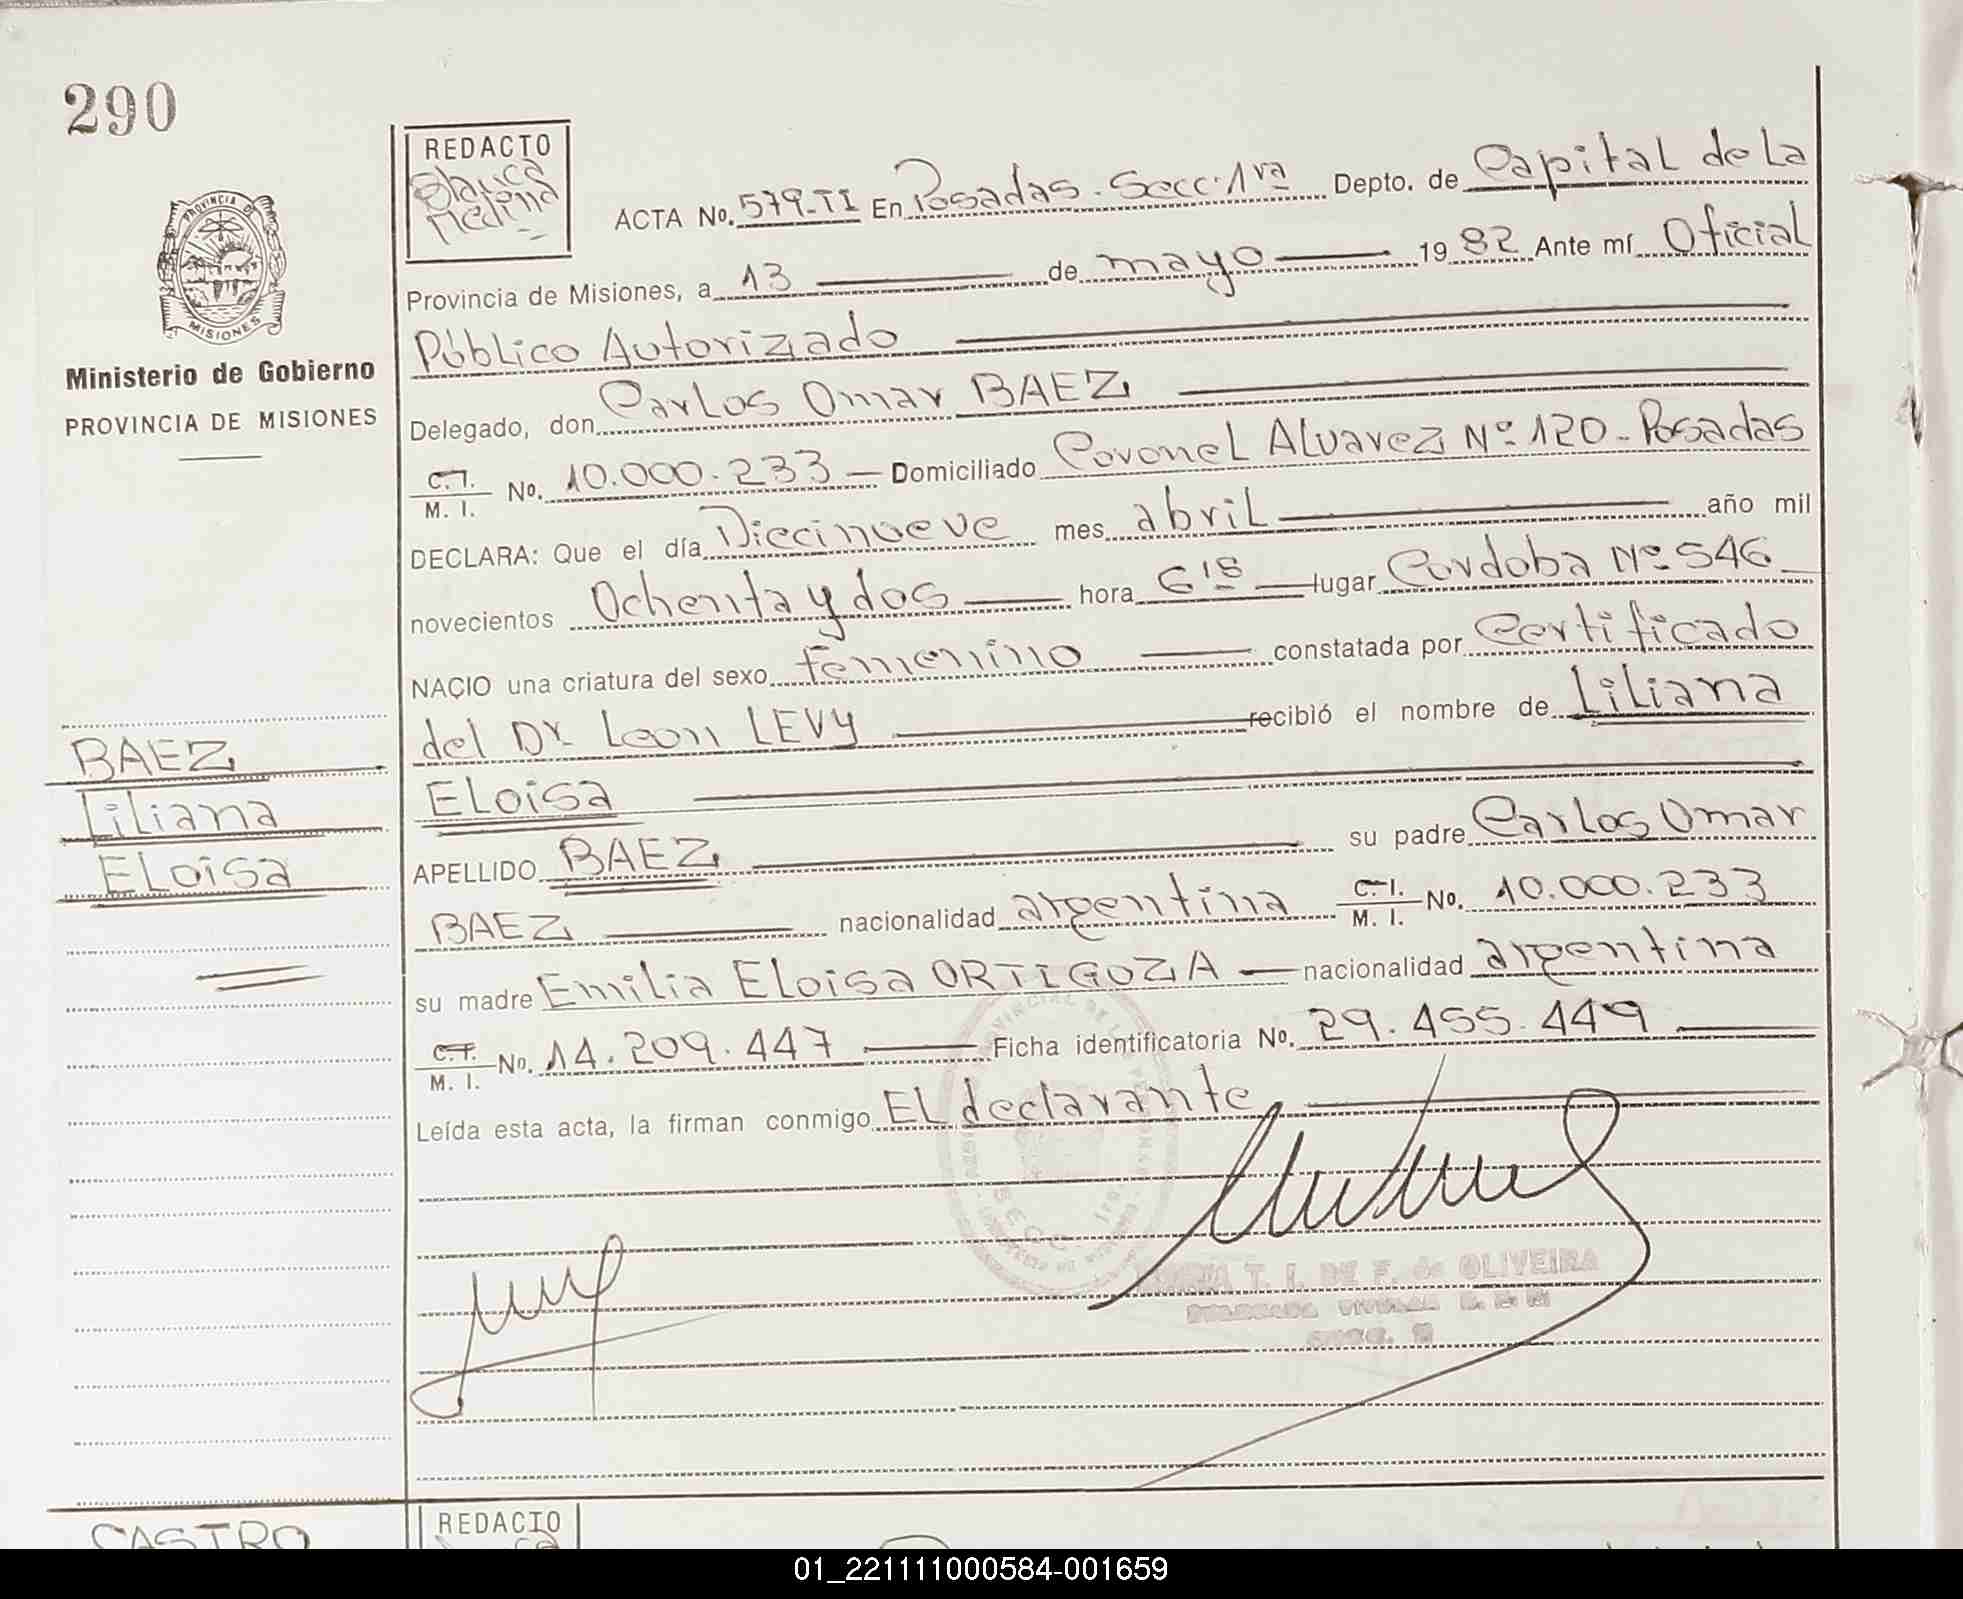 290
REDACTO
Blanca
Medina
PROVINCIA DE
MISIONES
Ministerio de Gobierno
PROVINCIA DE MISIONES
ACTA No. 579-TI En Posadas. Secc. 1ra Depto. de Capital de La
Provincia de Misiones, a 13 de mayo 19 82 Ante mí Oficial
Público Autorizado
Delegado, don Carlos Omar BAEZ
C.I. M. I. No. 10.000.233 Domiciliado Coronel Alvarez Nº 120 - Posadas
DECLARA: Que el día Diecinueve mes abril año mil
novecientos Ochenta y dos hora 6 15 lugar Cordoba Nº 546
NACIO una criatura del sexo femenino constatada por Certificado
del Dr. Leon LEVY recibió el nombre de Liliana
ELoisa
APELLIDO BAEZ su padre Carlos Omar
BAEZ nacionalidad argentina C.I. M. I. No. 10.000.233
su madre Emilia ELoisa ORTIGOZA nacionalidad argentina
C.I. M. I. No. 14.209.447 Ficha identificatoria No. 29.455.449
Leída esta acta, la firman conmigo EL declarante
BAEZ
Liliana
ELoisa
T. I. DE F. de OLIVEIRA
CASTRO
REDACTO
01_221111000584-001659